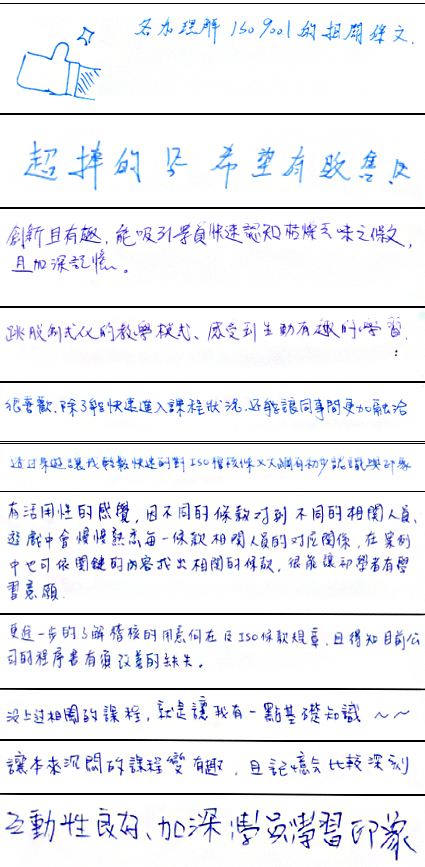 名為理解 ISO 9001 的相關條文.
超棒的 希望有販售
創新且有趣，能吸引學員快速認知枯燥乏味之條文，
且加深記憶。
跳脫制式化的教學模式、感受到生動有趣的學習.
很喜歡.除了能快速進入課程狀況.还能讓同事間更加融洽
透过桌遊讓我輕鬆快速的對ISO稽核條文大綱有初步認識與印象
有活用性的感覺，因不同的條款対到不同的相關人員、
遊戲中會慢慢熟悉每一條款相關人員的対应関係，在案例
中也可依関鍵的內容找出相関的條款，很能讓初學者有學
習意願.
更進一步的了解稽核的用意何在及ISO條款規章.且得知目前公
司的程序書有須改善的缺失。
沒上过相關的課程，就是讓我有一點基礎知識～～
讓本來沉悶的課程變有趣，且記憶会比較深刻
互動性良好、加深學員學習印象